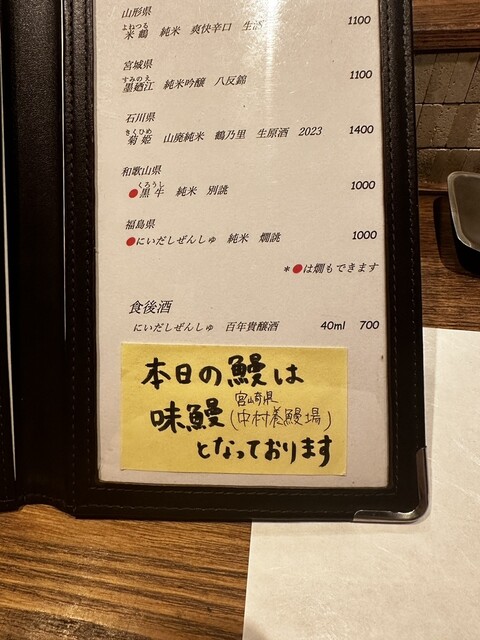 山形県
よねつる
米鶴 純米 爽快辛口 生酒 1100
宮城県
すみのえ
墨廼江 純米吟醸 八反錦 1100
石川県
きくひめ
菊姫 山廃純米 鶴乃里 生原酒 2023 1400
和歌山県
くろうし
●黒牛 純米 別誂 1000
福島県
●にいだしぜんしゅ 純米 燗誂 1000
*●は燗もできます
食後酒
にいだしぜんしゅ 百年貴醸酒 40ml 700
本日の鰻は
味鰻(宮崎県中村養鰻場)
となっております